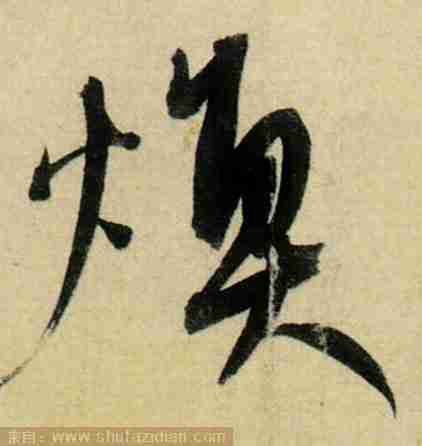 煥
来自：www.shufazidian.com